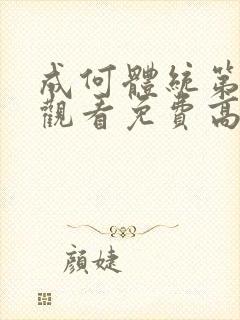 成何體統第
觀看免費高
顏婕